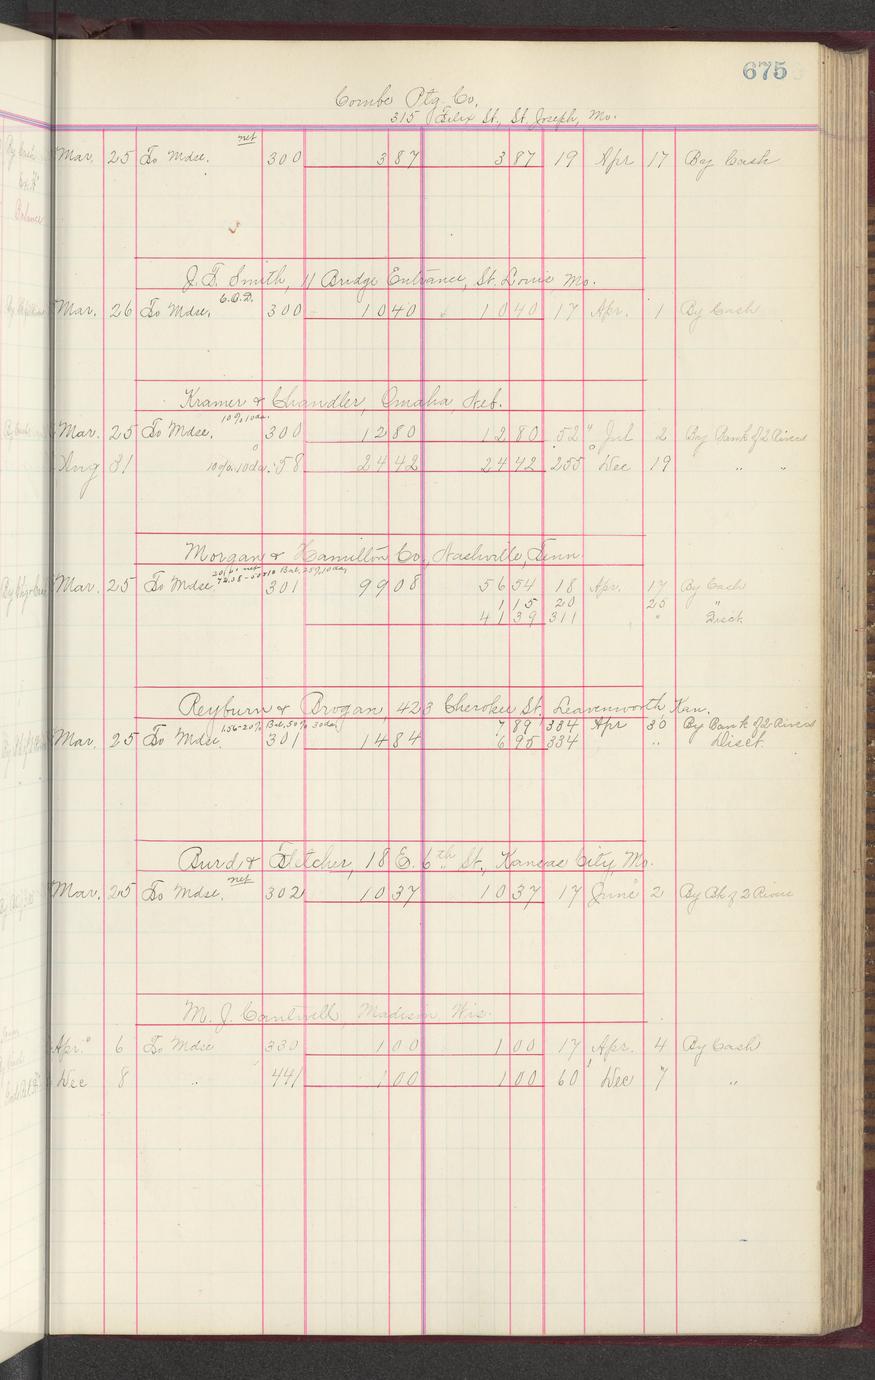 675
Combe Ptg Co,
315 Felix St., St. Joseph, Mo.
net
Mar. 25 To Mdse. 300 3 87 3 87 19 Apr 17 By Cash
J. F. Smith, 11 Bridge Entrance, St. Louis Mo.
C.O.D.
Mar. 26 To Mdse, 300 10 40 10 40 17 Apr. 1 By Cash
Kramer & Chandler, Omaha Neb.
10% 10 da.
Mar. 25 To Mdse, 300 12 80 12 80 52 Jul 2 By Bank of 2 Rivers
Aug 31 10% 10 da. 58 24 42 24 42 255 Dec 19 " "
Morgan & Hamilton Co., Nashville, Tenn.
Bal. 25% 10 da,
Mar. 25 To Mdse 301 99 08 56 54 18 Apr. 17 By Cash
1 15 20 25 "
41 39 311 " Disct.
Reyburn & Brogan, 423 Cherokee St, Leavenworth, Kan.
1.56-20% Bal. 50% 30 da 7 89 334 Apr 30 By Bank of 2 Rivers
Mar. 25 To Mdse, 301 14 84 6 95 334 " Disct.
Burd & Fletcher, 18 E. 6th St., Kansas City, Mo.
net
Mar. 25 To Mdse, 302 10 37 10 37 17 June 2 By Bk of 2 Rivers
M. J. Cantwell, Madison Wis.
Apr. 6 To Mdse 330 1 00 1 00 17 Apr. 4 By Cash
Dec 8 " 441 1 00 1 00 60 Dec 7 "